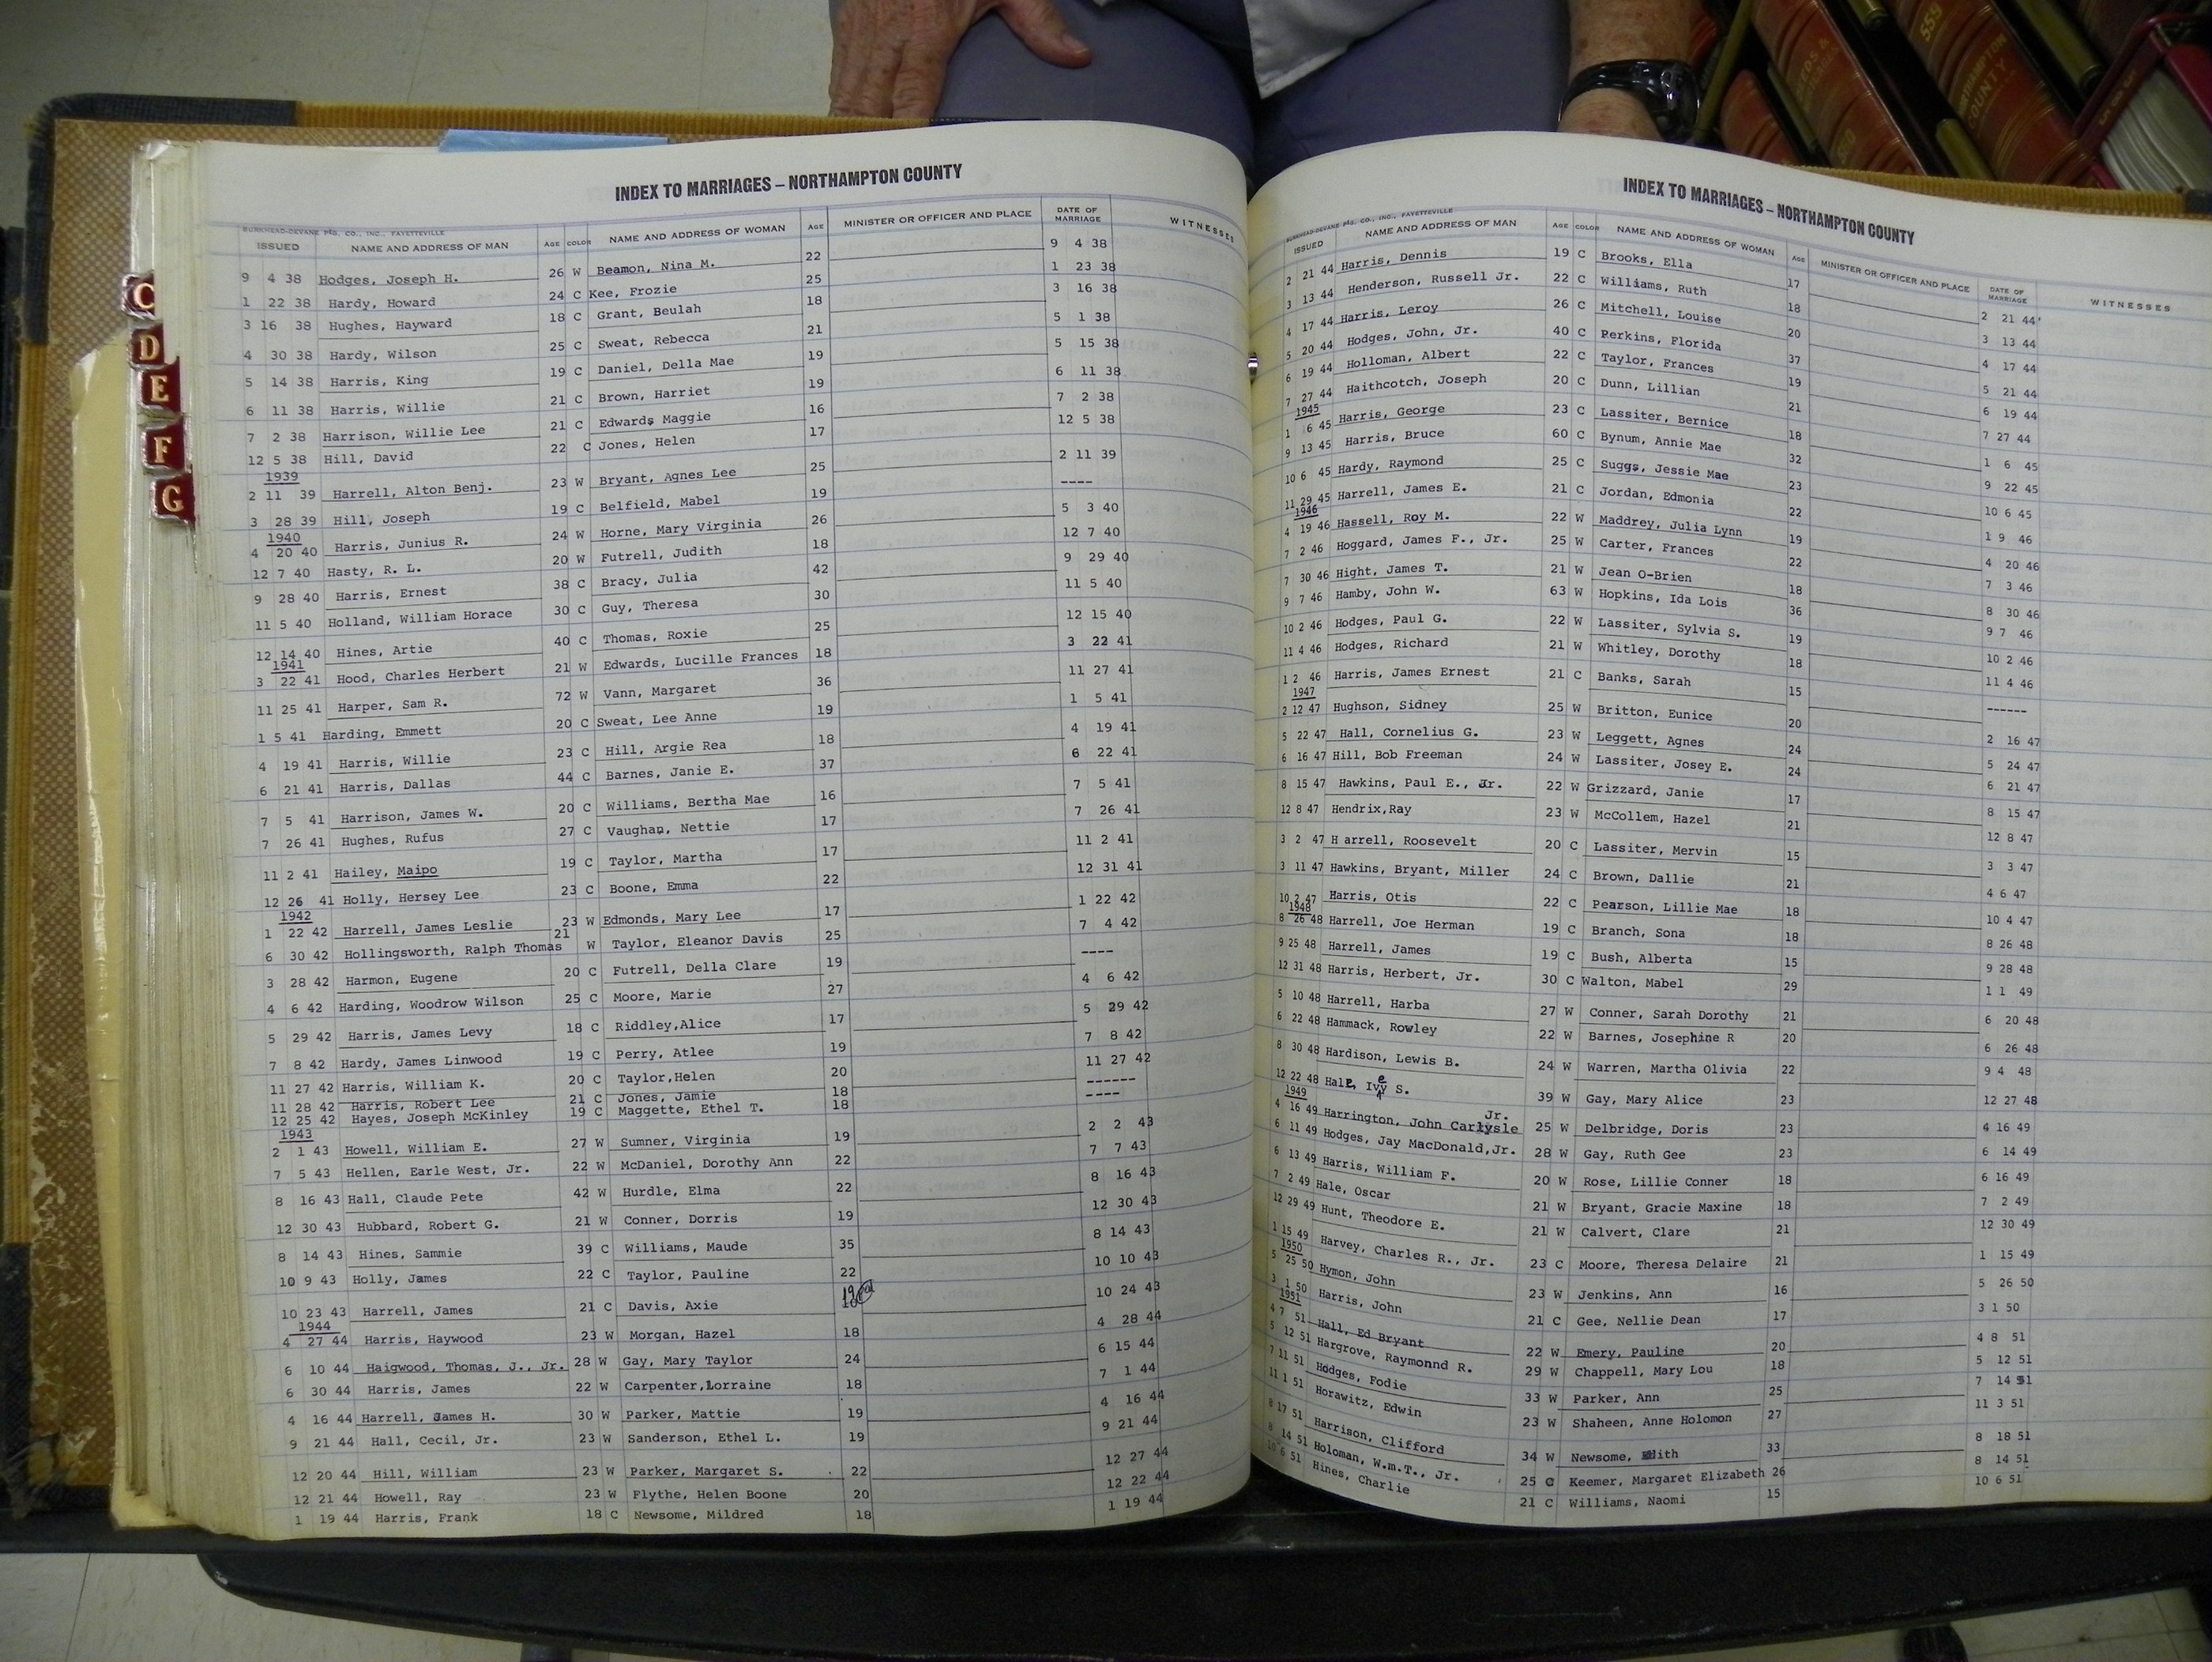 C
D
E
F
G
559
NORTHAMPTON COUNTY
INDEX TO MARRIAGES – NORTHAMPTON COUNTY
BURKHEAD-DEVANE PTG. CO., INC., FAYETTEVILLE
ISSUED NAME AND ADDRESS OF MAN AGE COLOR NAME AND ADDRESS OF WOMAN AGE MINISTER OR OFFICER AND PLACE DATE OF MARRIAGE WITNESSES
9 4 38 Hodges, Joseph H. 26 W Beamon, Nina M. 22 9 4 38
1 22 38 Hardy, Howard 24 C Kee, Frozie 25 1 23 38
3 16 38 Hughes, Hayward 18 C Grant, Beulah 18 3 16 38
4 30 38 Hardy, Wilson 25 C Sweat, Rebecca 21 5 1 38
5 14 38 Harris, King 19 C Daniel, Della Mae 19 5 15 38
6 11 38 Harris, Willie 21 C Brown, Harriet 19 6 11 38
7 2 38 Harrison, Willie Lee 21 C Edwards Maggie 16 7 2 38
12 5 38 Hill, David 22 C Jones, Helen 17 12 5 38
1939
2 11 39 Harrell, Alton Benj. 23 W Bryant, Agnes Lee 25 2 11 39
3 28 39 Hill, Joseph 19 C Belfield, Mabel 19 ----
1940
4 20 40 Harris, Junius R. 24 W Horne, Mary Virginia 26 5 3 40
12 7 40 Hasty, R. L. 20 W Futrell, Judith 18 12 7 40
9 28 40 Harris, Ernest 38 C Bracy, Julia 42 9 29 40
11 5 40 Holland, William Horace 30 C Guy, Theresa 30 11 5 40
12 14 40 Hines, Artie 40 C Thomas, Roxie 25 12 15 40
1941
3 22 41 Hood, Charles Herbert 21 W Edwards, Lucille Frances 18 3 22 41
11 25 41 Harper, Sam R. 72 W Vann, Margaret 36 11 27 41
1 5 41 Harding, Emmett 20 C Sweat, Lee Anne 19 1 5 41
4 19 41 Harris, Willie 23 C Hill, Argie Rea 18 4 19 41
6 21 41 Harris, Dallas 44 C Barnes, Janie E. 37 6 22 41
7 5 41 Harrison, James W. 20 C Williams, Bertha Mae 16 7 5 41
7 26 41 Hughes, Rufus 27 C Vaughan, Nettie 17 7 26 41
11 2 41 Hailey, Maipo 19 C Taylor, Martha 17 11 2 41
12 26 41 Holly, Hersey Lee 23 C Boone, Emma 22 12 31 41
1942
1 22 42 Harrell, James Leslie 23 W Edmonds, Mary Lee 17 1 22 42
6 30 42 Hollingsworth, Ralph Thomas 21 W Taylor, Eleanor Davis 25 7 4 42
3 28 42 Harmon, Eugene 20 C Futrell, Della Clare 19 ----
4 6 42 Harding, Woodrow Wilson 25 C Moore, Marie 27 4 6 42
5 29 42 Harris, James Levy 18 C Riddley,Alice 17 5 29 42
7 8 42 Hardy, James Linwood 19 C Perry, Atlee 19 7 8 42
11 27 42 Harris, William K. 20 C Taylor,Helen 20 11 27 42
11 28 42 Harris, Robert Lee 21 C Jones, Jamie 18 ------
12 25 42 Hayes, Joseph McKinley 19 C Maggette, Ethel T. 18 ----
1943
2 1 43 Howell, William E. 27 W Sumner, Virginia 19 2 2 43
7 5 43 Hellen, Earle West, Jr. 22 W McDaniel, Dorothy Ann 22 7 7 43
8 16 43 Hall, Claude Pete 42 W Hurdle, Elma 22 8 16 43
12 30 43 Hubbard, Robert G. 21 W Conner, Dorris 19 12 30 43
8 14 43 Hines, Sammie 39 C Williams, Maude 35 8 14 43
10 9 43 Holly, James 22 C Taylor, Pauline 22 10 10 43
10 23 43 Harrell, James 21 C Davis, Axie 19 10 24 43
1944
4 27 44 Harris, Haywood 23 W Morgan, Hazel 18 4 28 44
6 10 44 Haigwood, Thomas, J., Jr. 28 W Gay, Mary Taylor 24 6 15 44
6 30 44 Harris, James 22 W Carpenter,Lorraine 18 7 1 44
4 16 44 Harrell, James H. 30 W Parker, Mattie 19 4 16 44
9 21 44 Hall, Cecil, Jr. 23 W Sanderson, Ethel L. 19 9 21 44
12 20 44 Hill, William 23 W Parker, Margaret S. 22 12 27 44
12 21 44 Howell, Ray 23 W Flythe, Helen Boone 20 12 22 44
1 19 44 Harris, Frank 18 C Newsome, Mildred 18 1 19 44
INDEX TO MARRIAGES – NORTHAMPTON COUNTY
BURKHEAD-DEVANE PTG. CO., INC., FAYETTEVILLE
ISSUED NAME AND ADDRESS OF MAN AGE COLOR NAME AND ADDRESS OF WOMAN AGE MINISTER OR OFFICER AND PLACE DATE OF MARRIAGE WITNESSES
2 21 44 Harris, Dennis 19 C Brooks, Ella 17 2 21 44
3 13 44 Henderson, Russell Jr. 22 C Williams, Ruth 18 3 13 44
4 17 44 Harris, Leroy 26 C Mitchell, Louise 20 4 17 44
5 20 44 Hodges, John, Jr. 40 C Perkins, Florida 37 5 21 44
6 19 44 Holloman, Albert 22 C Taylor, Frances 19 6 19 44
7 27 44 Haithcotch, Joseph 20 C Dunn, Lillian 21 7 27 44
1945
1 6 45 Harris, George 23 C Lassiter, Bernice 18 1 6 45
9 13 45 Harris, Bruce 60 C Bynum, Annie Mae 32 9 22 45
10 6 45 Hardy, Raymond 25 C Suggs, Jessie Mae 23 10 6 45
11 29 45 Harrell, James E. 21 C Jordan, Edmonia 22 1 9 46
1946
4 19 46 Hassell, Roy M. 22 W Maddrey, Julia Lynn 19 4 20 46
7 2 46 Hoggard, James F., Jr. 25 W Carter, Frances 22 7 3 46
7 30 46 Hight, James T. 21 W Jean O-Brien 18 8 30 46
9 7 46 Hamby, John W. 63 W Hopkins, Ida Lois 36 9 7 46
10 2 46 Hodges, Paul G. 22 W Lassiter, Sylvia S. 19 10 2 46
11 4 46 Hodges, Richard 21 W Whitley, Dorothy 18 11 4 46
1 2 46 Harris, James Ernest 21 C Banks, Sarah 15 ------
1947
2 12 47 Hughson, Sidney 25 W Britton, Eunice 20 2 16 47
5 22 47 Hall, Cornelius G. 23 W Leggett, Agnes 24 5 24 47
6 16 47 Hill, Bob Freeman 24 W Lassiter, Josey E. 24 6 21 47
8 15 47 Hawkins, Paul E., Jr. 22 W Grizzard, Janie 17 8 15 47
12 8 47 Hendrix,Ray 23 W McCollem, Hazel 21 12 8 47
3 2 47 H arrell, Roosevelt 20 C Lassiter, Mervin 15 3 3 47
3 11 47 Hawkins, Bryant, Miller 24 C Brown, Dallie 21 4 6 47
10 2 47 Harris, Otis 22 C Pearson, Lillie Mae 18 10 4 47
1948
8 26 48 Harrell, Joe Herman 19 C Branch, Sona 18 8 26 48
9 25 48 Harrell, James 19 C Bush, Alberta 15 9 28 48
12 31 48 Harris, Herbert, Jr. 30 C Walton, Mabel 29 1 1 49
5 10 48 Harrell, Harba 27 W Conner, Sarah Dorothy 21 6 20 48
6 22 48 Hammack, Rowley 22 W Barnes, Josephine R 20 6 26 48
8 30 48 Hardison, Lewis B. 24 W Warren, Martha Olivia 22 9 4 48
12 22 48 Hale, Ivey S. 39 W Gay, Mary Alice 23 12 27 48
1949
4 16 49 Harrington, John Carlysle Jr. 25 W Delbridge, Doris 23 4 16 49
6 11 49 Hodges, Jay MacDonald,Jr. 28 W Gay, Ruth Gee 23 6 14 49
6 13 49 Harris, William F. 20 W Rose, Lillie Conner 18 6 16 49
7 2 49 Hale, Oscar 21 W Bryant, Gracie Maxine 18 7 2 49
12 29 49 Hunt, Theodore E. 21 W Calvert, Clare 21 12 30 49
1 15 49 Harvey, Charles R., Jr. 23 C Moore, Theresa Delaire 21 1 15 49
1950
5 25 50 Hymon, John 23 W Jenkins, Ann 16 5 26 50
3 1 50 Harris, John 21 C Gee, Nellie Dean 17 3 1 50
1951
4 7 51 Hall, Ed Bryant 22 W Emery, Pauline 20 4 8 51
5 12 51 Hargrove, Raymonnd R. 29 W Chappell, Mary Lou 18 5 12 51
7 11 51 Hodges, Fodie 33 W Parker, Ann 25 7 14 51
11 1 51 Horawitz, Edwin 23 W Shaheen, Anne Holomon 27 11 3 51
8 17 51 Harrison, Clifford 34 W Newsome, 33 8 18 51
8 14 51 Holoman, W.m.T., Jr. 25 C Keemer, Margaret Elizabeth 26 8 14 51
10 6 51 Hines, Charlie 21 C Williams, Naomi 15 10 6 51